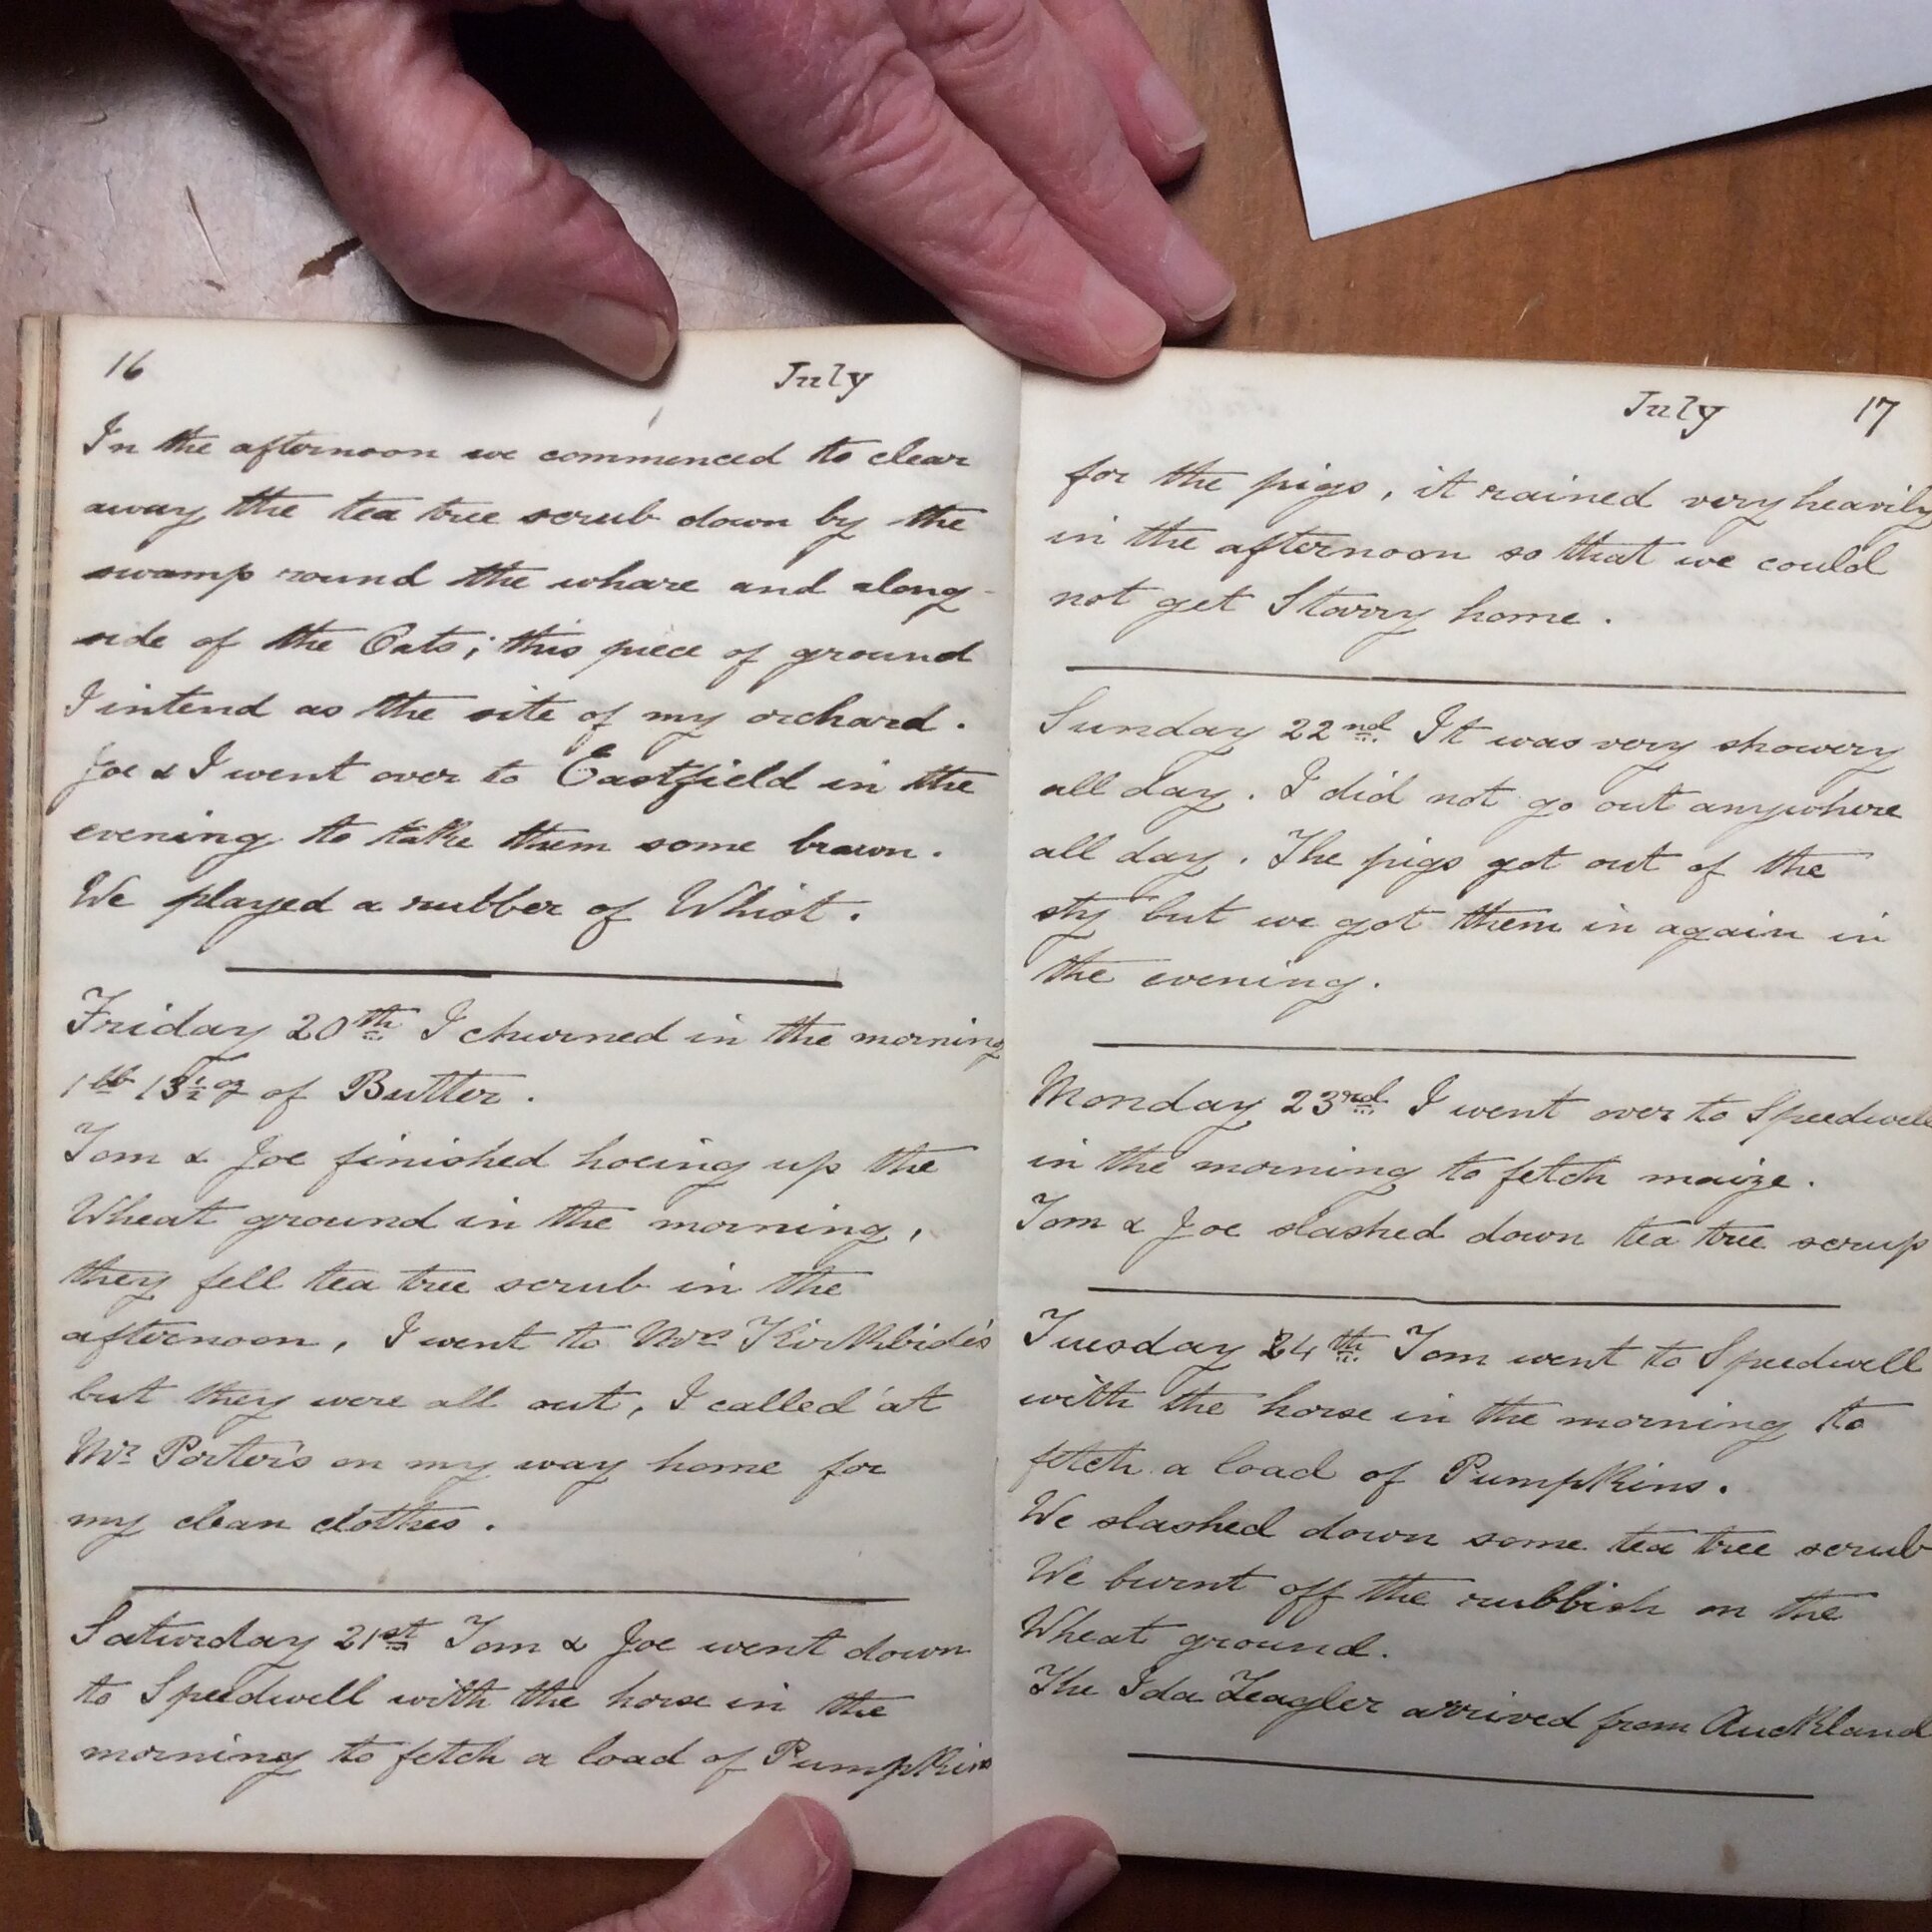 16 July
In the afternoon we commenced to clear
away the tea tree scrub down by the
swamp round the whare and along-
side of the Oats; this piece of ground
I intend as the site of my orchard.
Joe & I went over to Eastfield in the
evening to take them some brawn.
We played a rubber of Whist.
Friday 20th I churned in the morning
1lb 13½oz of Butter.
Tom & Joe finished hoeing up the
Wheat ground in the morning,
they fell tea tree scrub in the
afternoon, I went to Mrs Kirkbride's
but they were all out, I called at
Mr Porter's on my way home for
my clean clothes.
Saturday 21st Tom & Joe went down
to Speedwell with the horse in the
morning to fetch a load of Pumpkins
July 17
for the pigs, it rained very heavily
in the afternoon so that we could
not get Starry home.
Sunday 22nd It was very showery
all day. I did not go out anywhere
all day. The pigs got out of the
sty but we got them in again in
the evening.
Monday 23rd I went over to Speedwell
in the morning to fetch maize.
Tom & Joe slashed down tea tree scrup
Tuesday 24th Tom went to Speedwell
with the horse in the morning to
fetch a load of Pumpkins.
We slashed down some tea tree scrub
We burnt off the rubbish on the
Wheat ground.
The Ida Zeagler arrived from Auckland